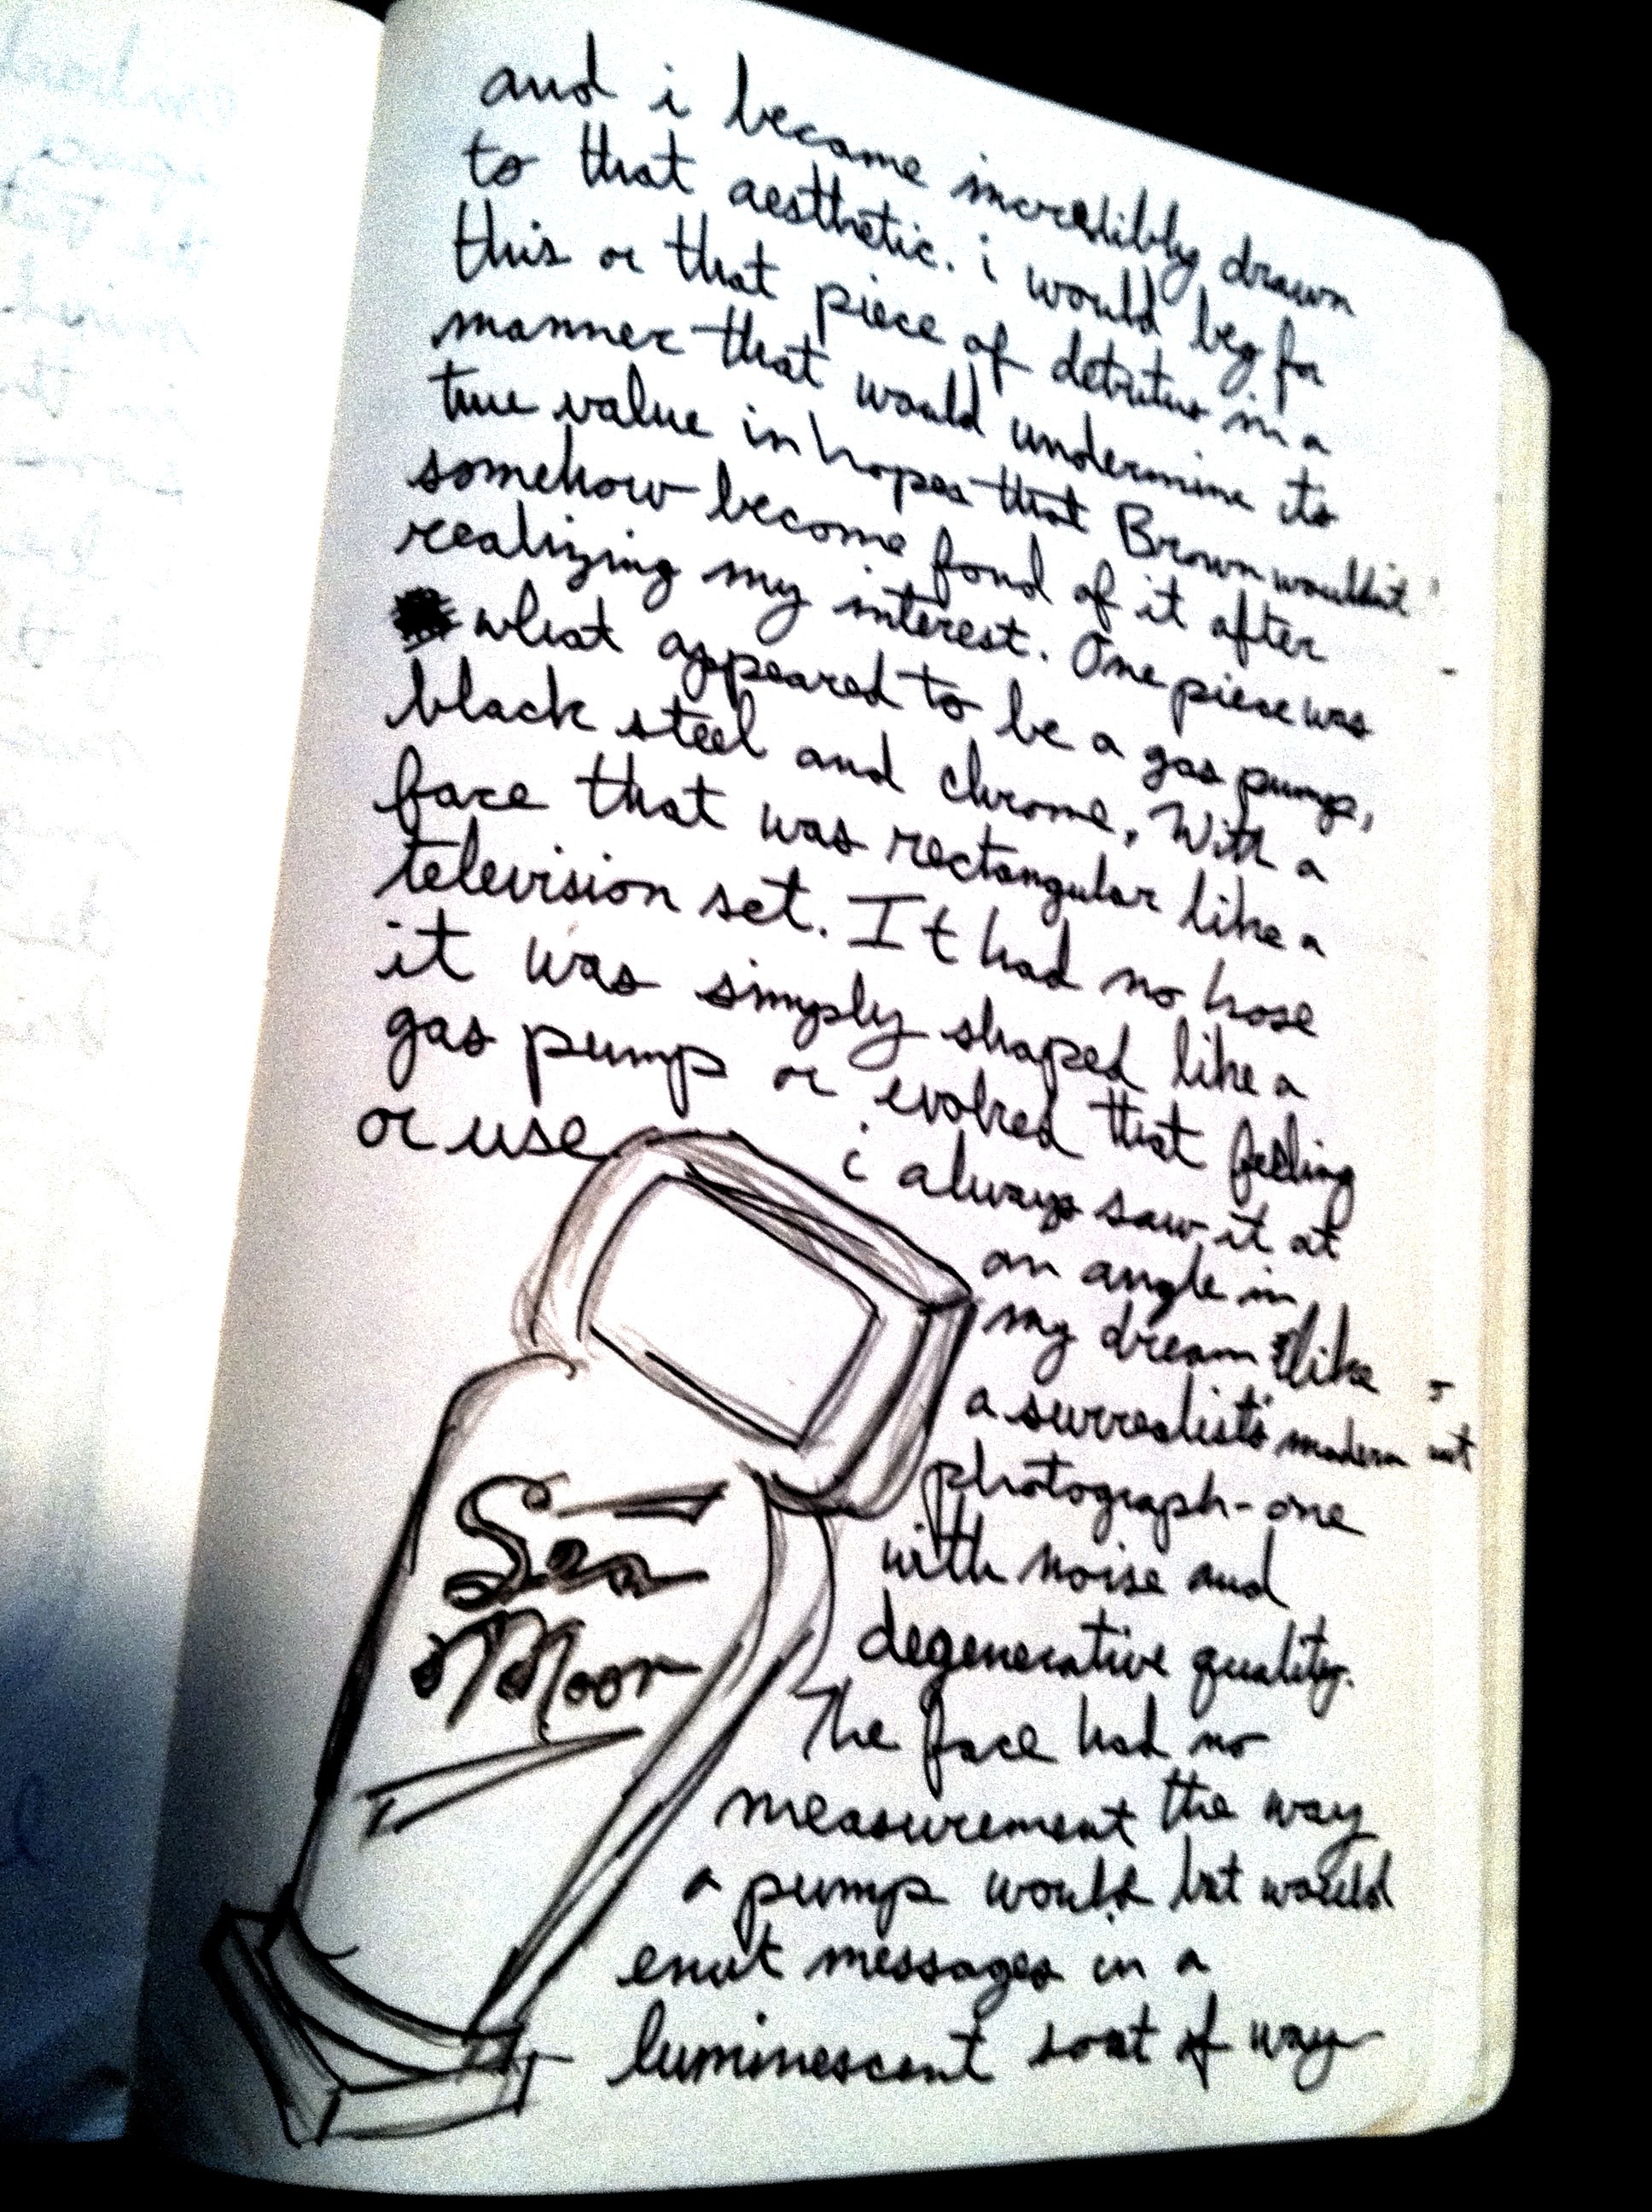 and i became incredibly drawn
to that aesthetic. i would beg for
this or that piece of detritus in a
manner that would undermine its
true value in hopes that Brown wouldn't
somehow become fond of it after
realizing my interest. One piece was
what appeared to be a gas pump,
black steel and chrome, With a
face that was rectangular like a
television set. It had no hose
it was simply shaped like a
gas pump or evoked that feeling
or use
i always saw it at
an angle in
my dream like
a surrealist's modern art
photograph - one
with noise and
degenerative quality.
The face had no
measurement the way
a pump would but would
emit messages in a
luminescent sort of way
Sea
Moon